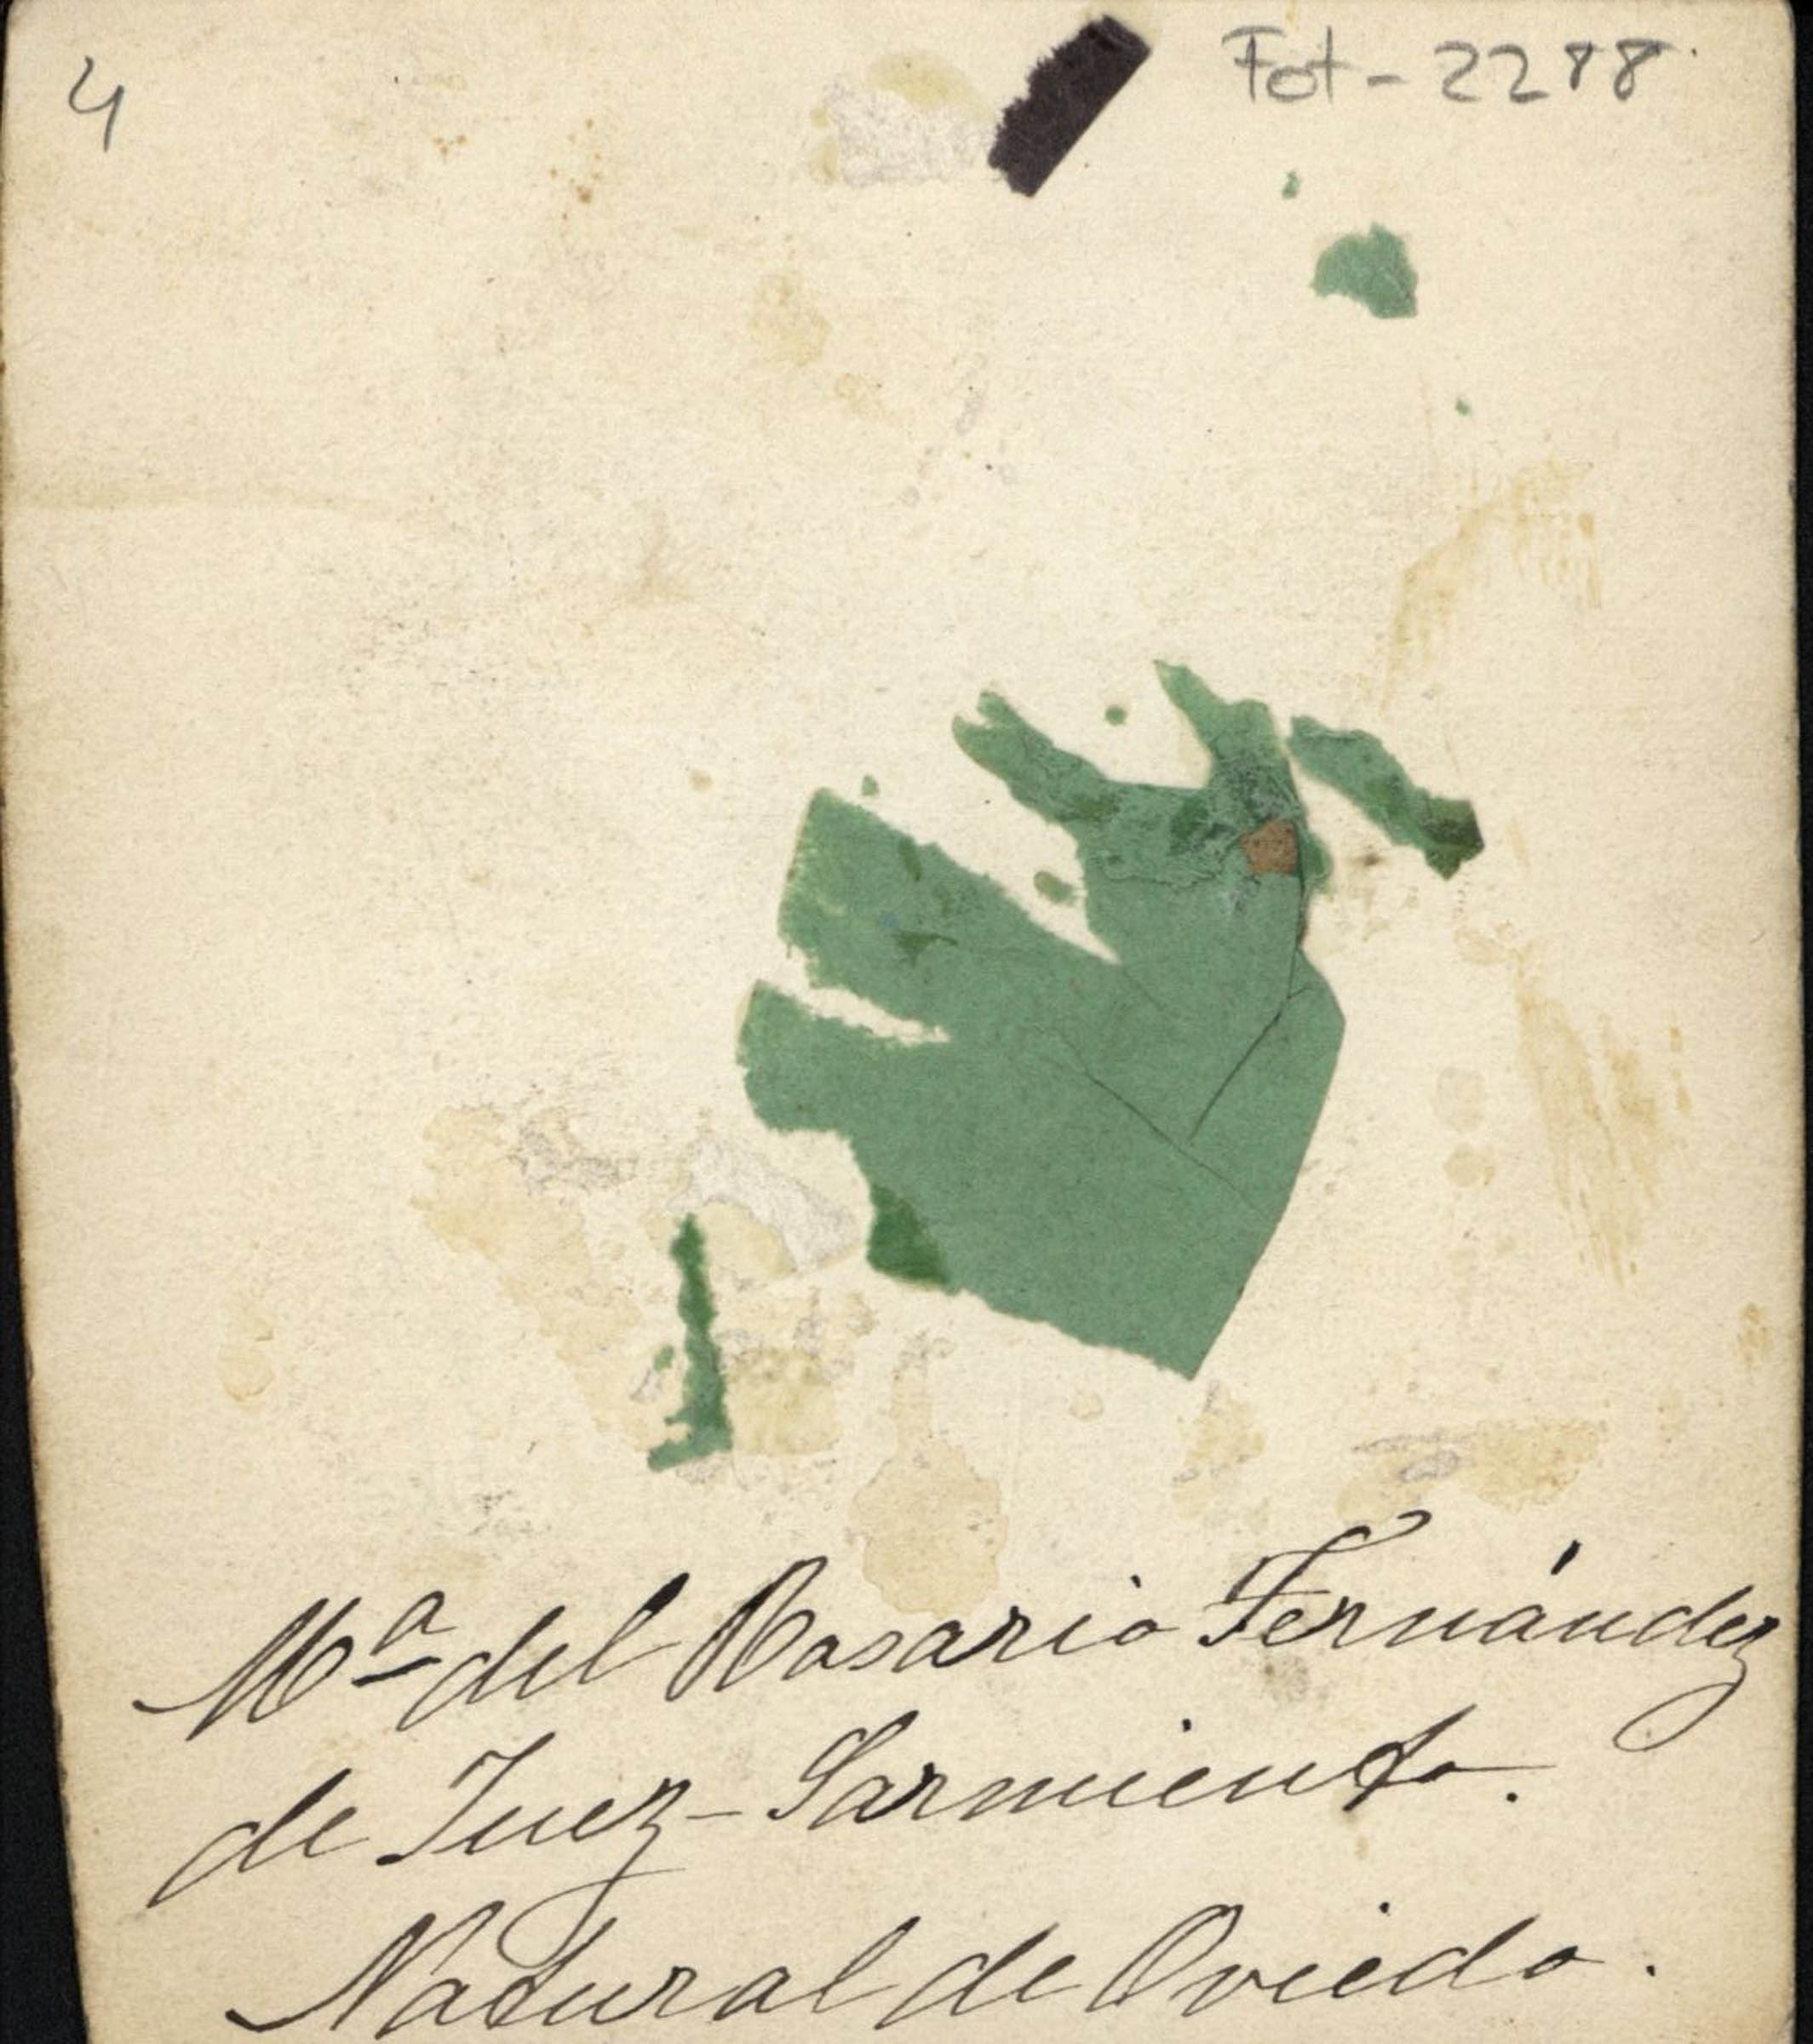 4
Fot-2288
Mª del Rosario Fernández
de Juez-Sarmiento.
Natural de Oviedo.